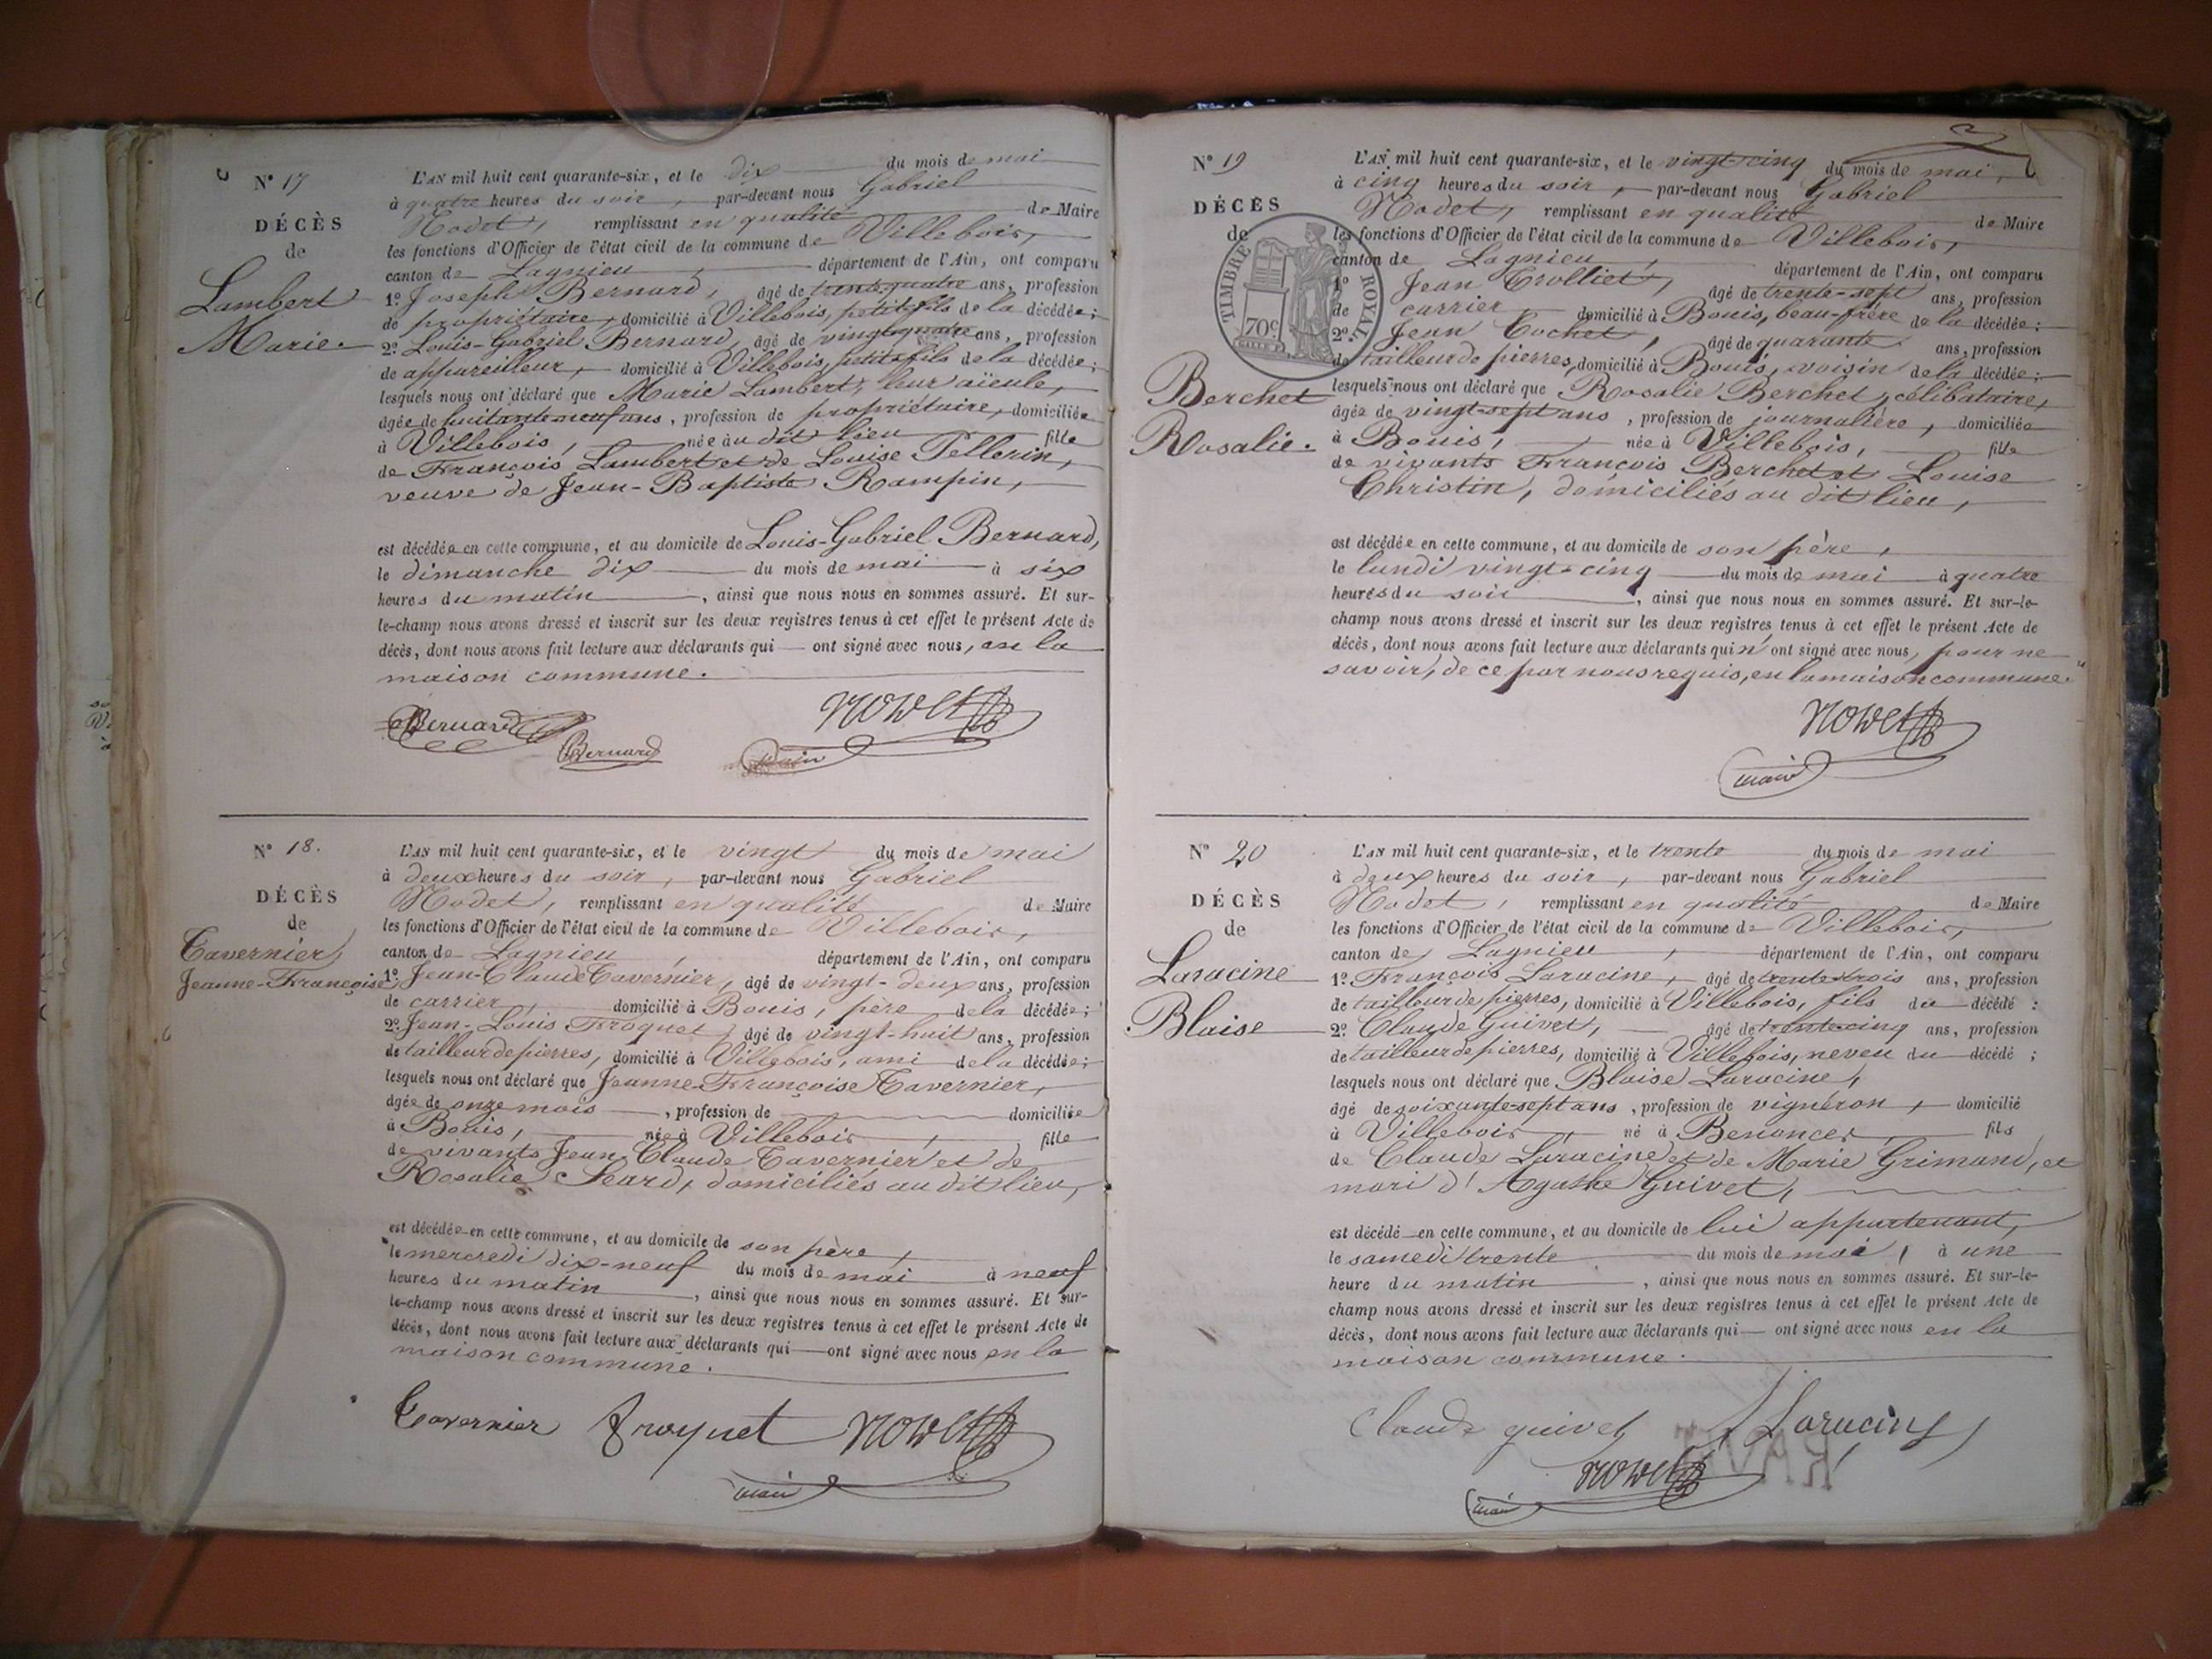 N° 17
DÉCÈS
de
Lambert
Marie.
L'AN mil huit cent quarante-six, et le dix du mois de mai
à quatre heures du soir, par-devant nous Gabriel
Nodet, remplissant en qualité de Maire
les fonctions d'Officier de l'état civil de la commune de Villebois,
canton de Lagnieu, département de l'Ain, ont comparu
1° Joseph Bernard, âgé de trente-quatre ans, profession
de propriétaire, domicilié à Villebois, petit-fils de la décédée;
2° Louis-Gabriel Bernard, âgé de vingt-quatre ans, profession
de appareilleur, domicilié à Villebois, petit-fils de la décédée;
lesquels nous ont déclaré que Marie Lambert, leur aïeule,
âgée de huitante-neuf ans, profession de propriétaire, domiciliée
à Villebois, née au dit lieu fille
de François Lambert et de Louise Pellerin,
veuve de Jean-Baptiste Rampin,
est décédée en cette commune, et au domicile de Louis-Gabriel Bernard,
le dimanche dix du mois de mai à six
heures du matin, ainsi que nous nous en sommes assuré. Et sur-
le-champ nous avons dressé et inscrit sur les deux registres tenus à cet effet le présent Acte de
décès, dont nous avons fait lecture aux déclarants qui ont signé avec nous, en la
maison commune.
Bernard
Bernard
Nodet
maire
N° 18.
DÉCÈS
de
Tavernier
Jeanne-Françoise
L'AN mil huit cent quarante-six, et le vingt du mois de mai
à deux heures du soir, par-devant nous Gabriel
Nodet, remplissant en qualité de Maire
les fonctions d'Officier de l'état civil de la commune de Villebois,
canton de Lagnieu, département de l'Ain, ont comparu
1° Jean-Claude Tavernier, âgé de vingt-deux ans, profession
de carrier, domicilié à Bouis, père de la décédée;
2° Jean-Louis Froquet, âgé de vingt-huit ans, profession
de tailleur de pierres, domicilié à Villebois, ami de la décédée;
lesquels nous ont déclaré que Jeanne-Françoise Tavernier,
âgée de onze mois, profession de domiciliée
à Bouis, née à Villebois, fille
de vivants Jean-Claude Tavernier et de
Rosalie Seard, domiciliés au dit lieu,
est décédée en cette commune, et au domicile de son père,
le mercredi dix-neuf du mois de mai à neuf
heures du matin, ainsi que nous nous en sommes assuré. Et sur-
le-champ nous avons dressé et inscrit sur les deux registres tenus à cet effet le présent Acte de
décès, dont nous avons fait lecture aux déclarants qui ont signé avec nous en la
maison commune.
Tavernier froquet Nodet
maire
N° 19
DÉCÈS
de
TIMBRE ROYAL
70c
Berchet
Rosalie.
L'AN mil huit cent quarante-six, et le vingt-cinq du mois de mai,
à cinq heures du soir, par-devant nous Gabriel
Nodet, remplissant en qualité de Maire
les fonctions d'Officier de l'état civil de la commune de Villebois,
canton de Lagnieu, département de l'Ain, ont comparu
1° Jean Trolliet, âgé de trente-sept ans, profession
de carrier domicilié à Bouis, beau-frère de la décédée;
2° Jean Cochet, âgé de quarante ans, profession
de tailleur de pierres, domicilié à Bouis, voisin de la décédée;
lesquels nous ont déclaré que Rosalie Berchet, célibataire,
âgée de vingt-sept ans, profession de journalière, domiciliée
à Bouis, née à Villebois, fille
de vivants François Berchet et Louise
Christin, domiciliés au dit lieu,
est décédée en cette commune, et au domicile de son père,
le lundi vingt-cinq du mois de mai à quatre
heures du soir, ainsi que nous nous en sommes assuré. Et sur-le-
champ nous avons dressé et inscrit sur les deux registres tenus à cet effet le présent Acte de
décès, dont nous avons fait lecture aux déclarants qui n'ont signé avec nous, pour ne
savoir, de ce par nous requis, en la maison commune.
Nodet
maire
N° 20
DÉCÈS
de
Laracine
Blaise
L'AN mil huit cent quarante-six, et le trente du mois de mai
à deux heures du soir, par-devant nous Gabriel
Nodet, remplissant en qualité de Maire
les fonctions d'Officier de l'état civil de la commune de Villebois,
canton de Lagnieu, département de l'Ain, ont comparu
1° François Laracine, âgé de trente-trois ans, profession
de tailleur de pierres, domicilié à Villebois, fils du décédé;
2° Claude Guivet, âgé de trente-cinq ans, profession
de tailleur de pierres, domicilié à Villebois, neveu du décédé;
lesquels nous ont déclaré que Blaise Laracine,
âgé de soixante-sept ans, profession de vigneron, domicilié
à Villebois, né à Benonces, fils
de Claude Laracine et de Marie Grimand, et
mari d'Agathe Guivet,
est décédé en cette commune, et au domicile de lui appartenant,
le samedi trente du mois de mai, à une
heure du matin, ainsi que nous nous en sommes assuré. Et sur-le-
champ nous avons dressé et inscrit sur les deux registres tenus à cet effet le présent Acte de
décès, dont nous avons fait lecture aux déclarants qui ont signé avec nous en la
maison commune.
Claude guivet Laracine
Nodet
maire